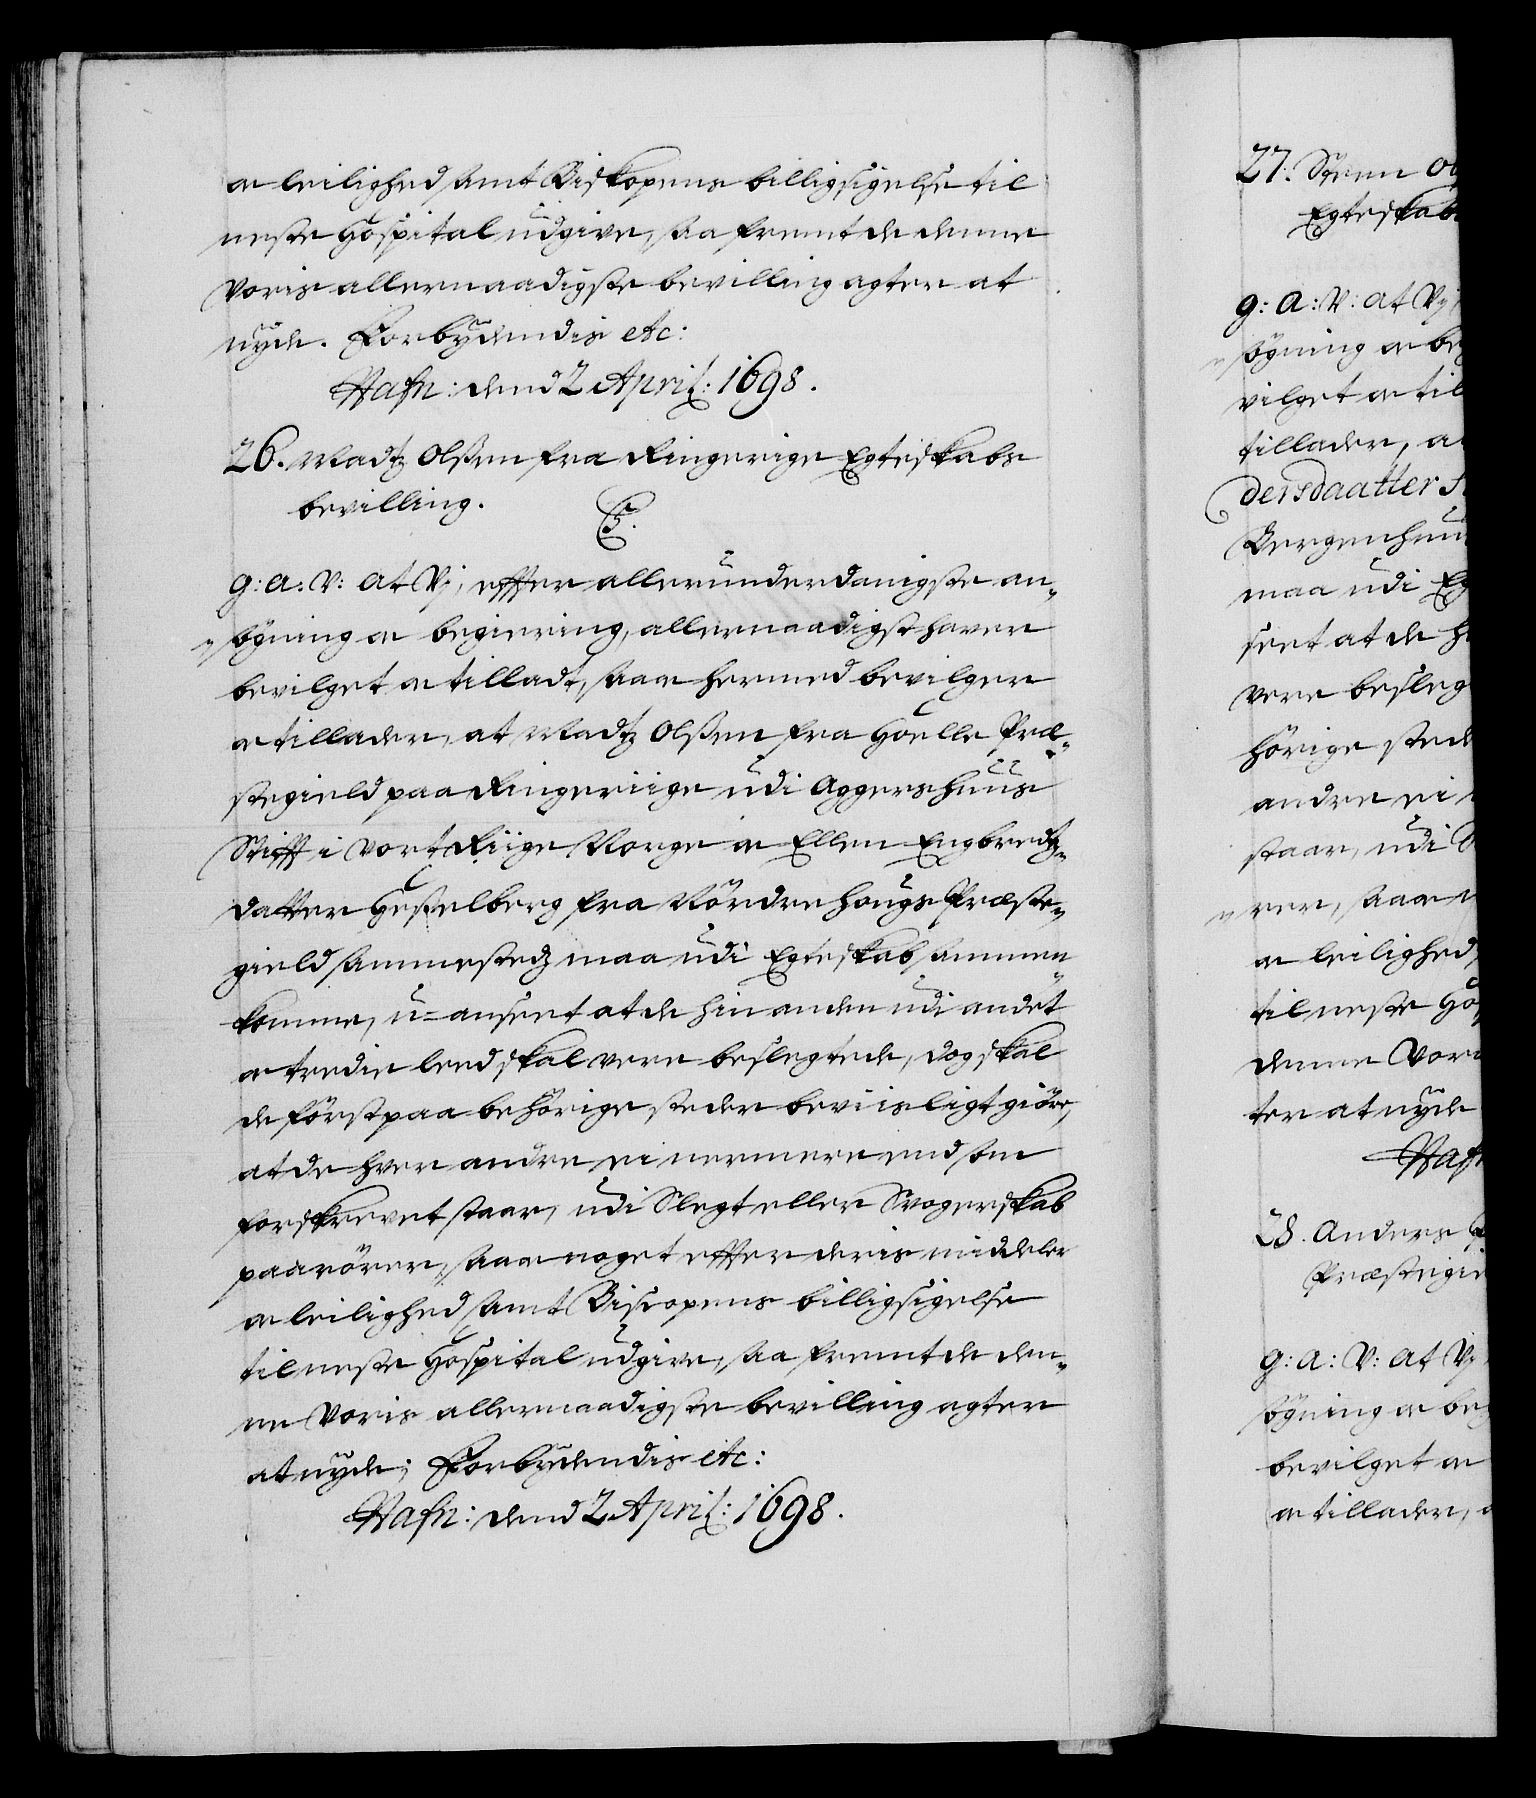 oc leilighed samt Biskopens billigsigelse til
neste Hospital udgive, saa fremt de denne
Voris allernaadigste bevilling agter at
nyde. Forbydendis etc:
Hafn: dend 2 April: 1698.
26. Madtz Olßen fra Ringerige Egteskabs
bevilling.
C5.
G: A: V: At Vj, effter allerunderdanigste an„
„søgning oc begiering, allernaadigst haver
bevilget oc tilladt, saa oc hermed bevilger
oc tillader, at Madtz Olßen fra Hoelle Præ„
stegield paa Ringeriige udi Aggershuus
Stifft i vort Riige Norge oc Ellen Engbredtz„
datter Gesselberg fra Nordrehougs Præste„
gield sammestedz maa udi Egteskab sammen„
komme, u=anseet at de hin anden udi andet
oc tredie leed skal vere beslegtede, dog skal
de først paa behørige steder beviisligt giøre,
at de hver andre ei nermere end som
forskrevet staar, udi Slegt eller Svogerskab
paarører, saa oc noget effter deris middeler
oc leilighed samt Biscopens billigsigelse
til neste Hospital udgive, saa fremt de den„
ne Voris allernaadigste bevilling agter
at nyde; Forbydendis etc:
Hafn: dend 2 April: 1698.
27. Steen
Egteskabs
G: A: V: At Vj
„søgning oc be
vilget oc til
tillader, a
dersdaatter
Bergenhuu
maa udi Eg
seet at de h
vere besleg
hørige stede
andre ei
staar, udi
„rer, saa oc
oc leilighed,
til neste Hos
denne Vori
ter at nyde
Hafn
28. Anders
Præstegie
G: A: V: At Vj
søgning oc beg
bevilget oc
oc tillader, a